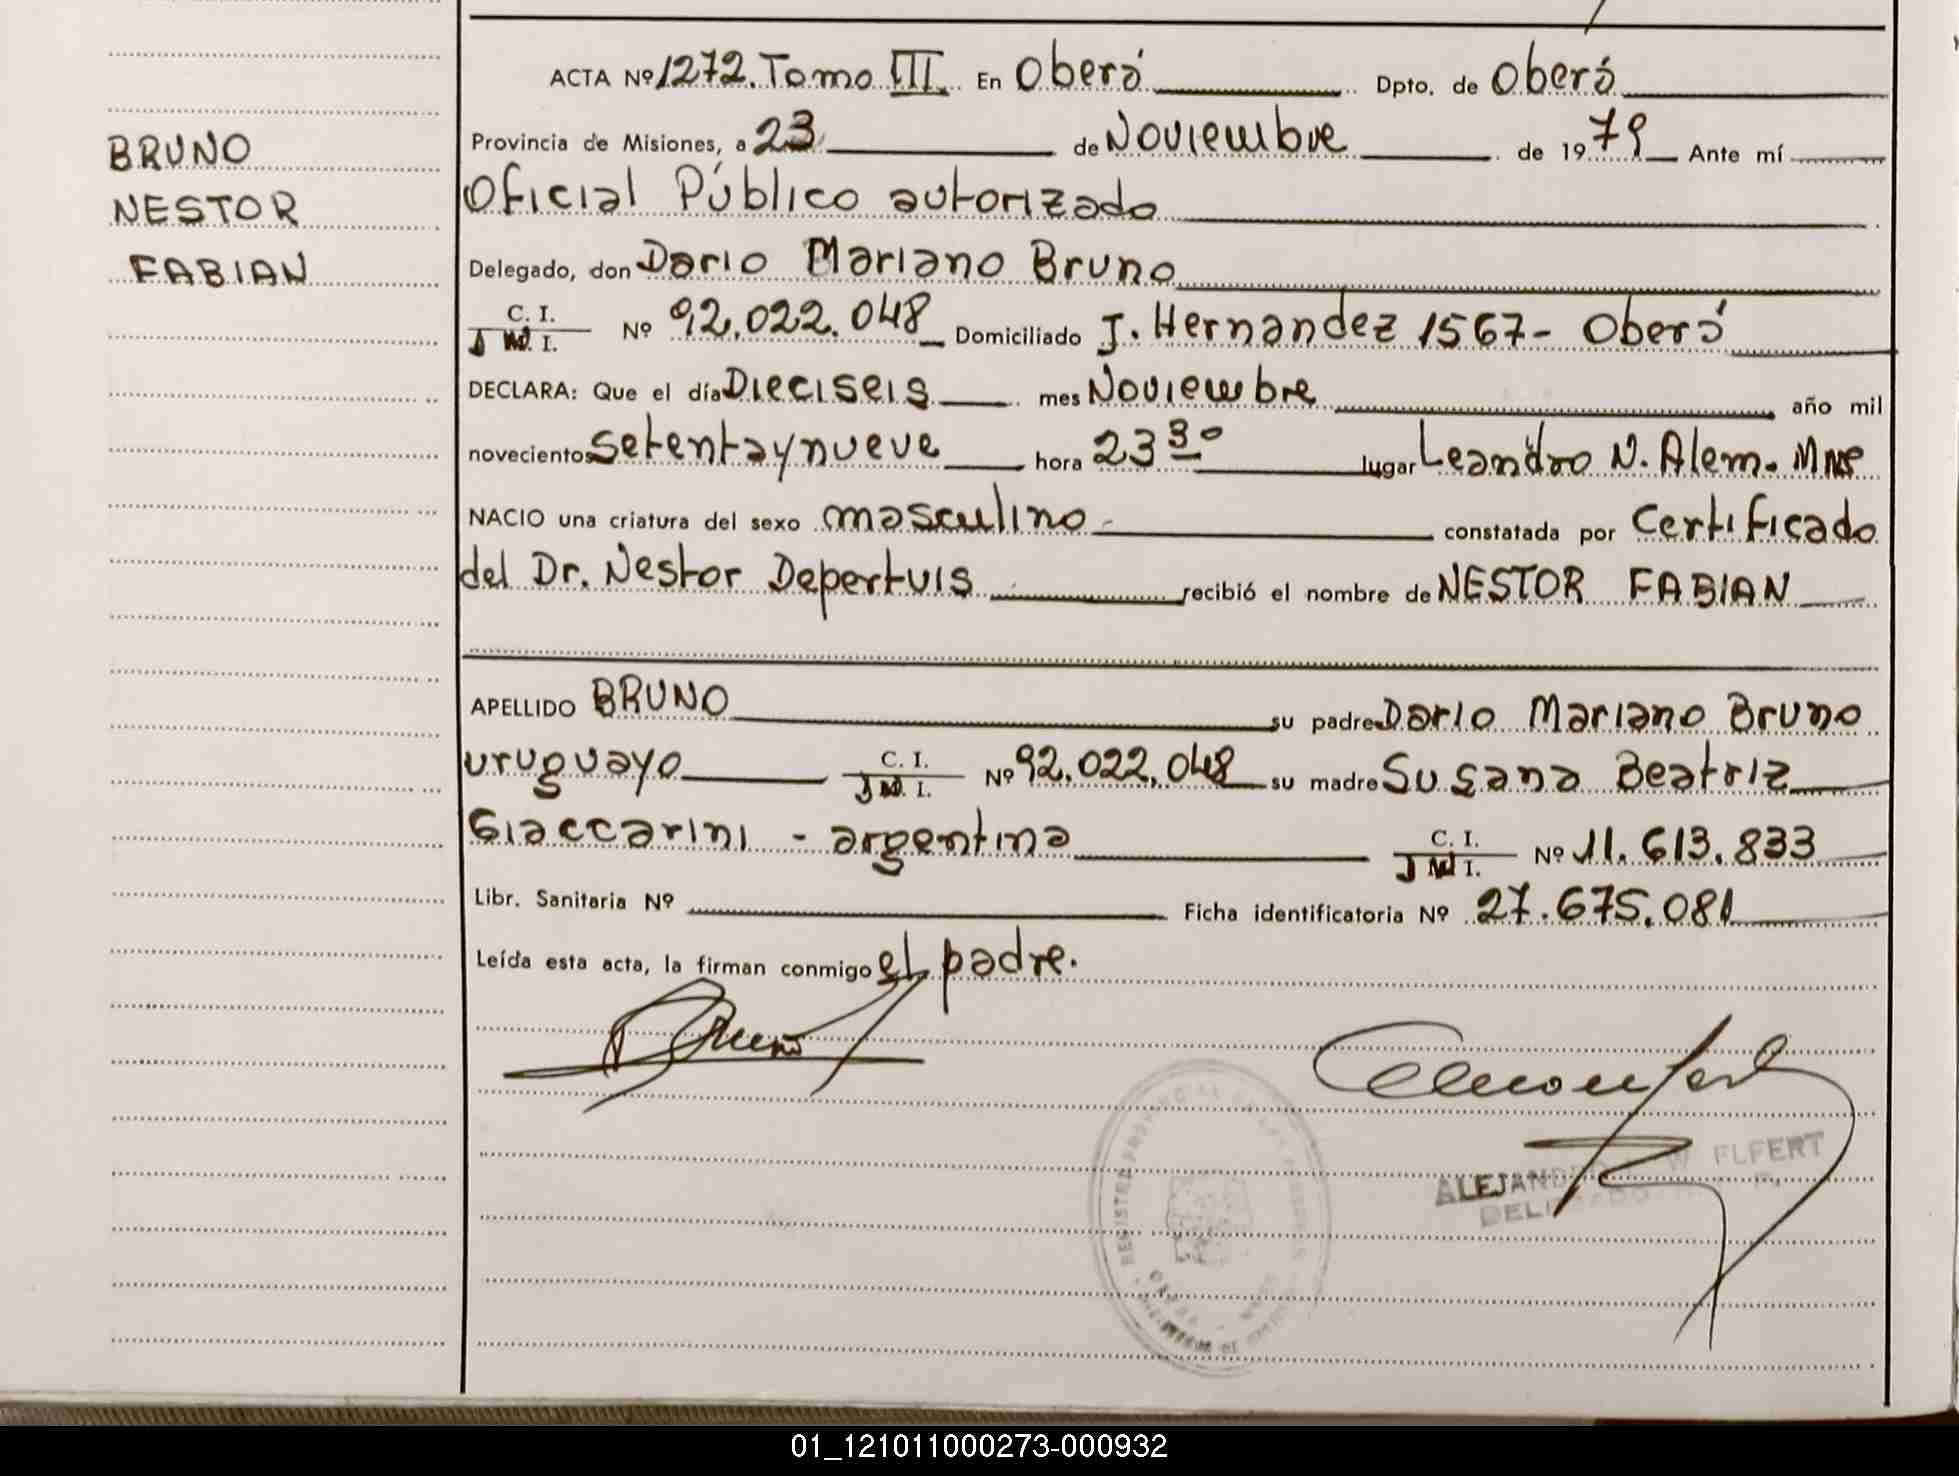 BRUNO
NESTOR
FABIAN
ACTA Nº 1272. Tomo III. En Oberá Dpto. de Oberá
Provincia de Misiones, a 23 de Noviembre de 1979 Ante mí
Oficial Público autorizado
Delegado, don Dario Mariano Bruno
C. I.
D N I. Nº 92.022.048 Domiciliado J. Hernandez 1567 - Oberá
DECLARA: Que el día Dieciseis mes Noviembre año mil
novecientos setentaynueve hora 23 30 lugar Leandro N. Alem. Mnes
NACIO una criatura del sexo masculino constatada por Certificado
del Dr. Nestor Depertuis recibió el nombre de NESTOR FABIAN
APELLIDO BRUNO su padre Dario Mariano Bruno
uruguayo C. I. D N I. Nº 92.022.048 su madre Susana Beatriz
Giaccarini - argentina C. I. D N I. Nº 11.613.833
Libr. Sanitaria Nº Ficha identificatoria Nº 27.675.081
Leída esta acta, la firman conmigo el padre.
Bruno
ALEJANDRO W ELFERT
DELEGADO
01_121011000273-000932